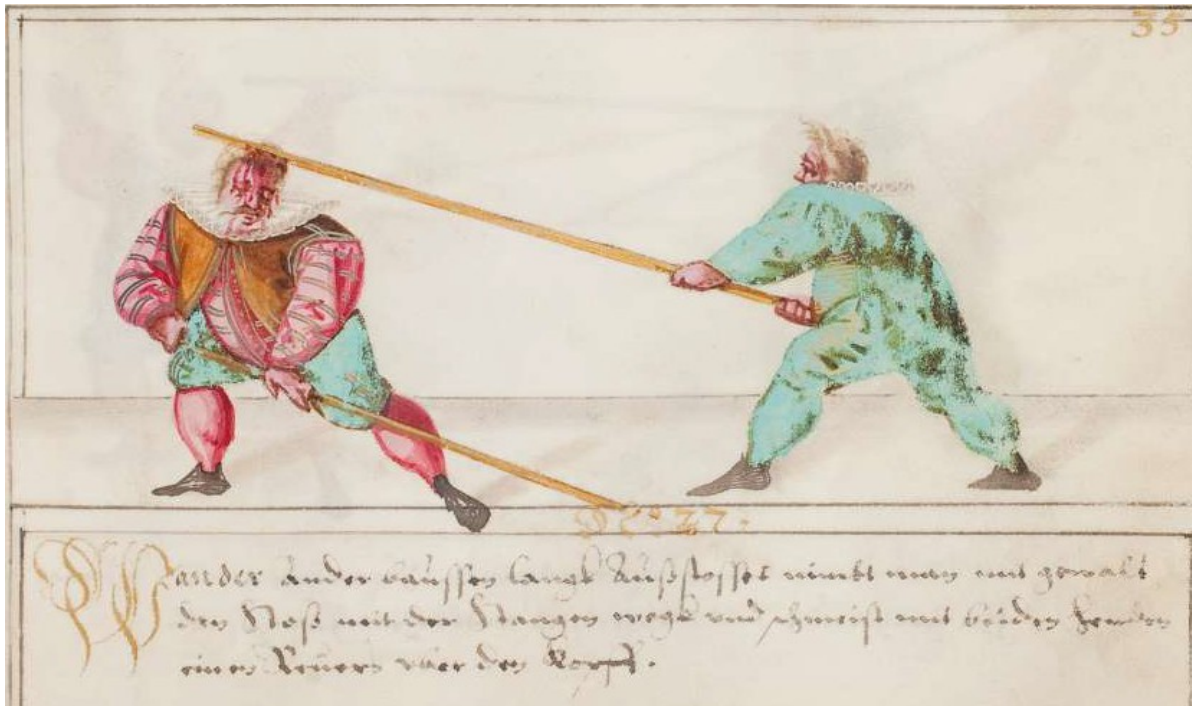 35
N° 27.
Wan der Ander baussen langk Außstosset nimbt man mit gewalt
den Stoß mit der Stangen wegk vnd schmeist mit beiden henden
einen Reuers vber den Kopff.